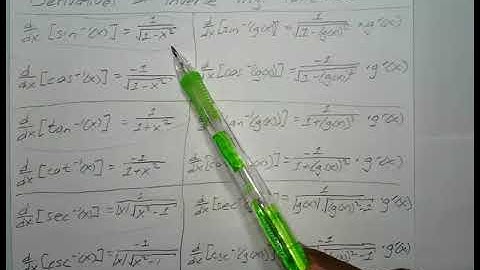 Derivatives Inverse
d/dx [sin⁻¹(x)] = 1/√(1-x²) d/dx [sin⁻¹(g(x))] = 1/√(1-(g(x))²) · g'(x)
d/dx [cos⁻¹(x)] = -1/√(1-x²) d/dx [cos⁻¹(g(x))] = -1/√(1-(g(x))²) · g'(x)
d/dx [tan⁻¹(x)] = 1/(1+x²) [tan⁻¹(g(x))] = 1/(1+(g(x))²) · g'(x)
d/dx [cot⁻¹(x)] = -1/(1+x²) (g(x))] = -1/(1+(g(x))²) · g'(x)
d/dx [sec⁻¹(x)] = 1/(|x|√(x²-1)) d/dx [sec⁻¹(g(x))] = 1/(|g(x)|√((g(x))²-1)) · g'(x)
d/dx [csc⁻¹(x)] = -1/(|x|√(x²-1)) d/dx [csc⁻¹(g(x))] = -1/(|g(x)|√((g(x))²-1)) · g'(x)